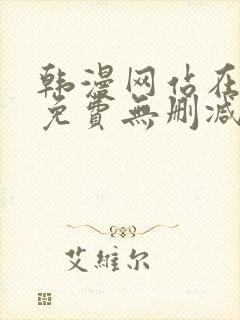 韩漫网站在
免費無删减
艾維尔